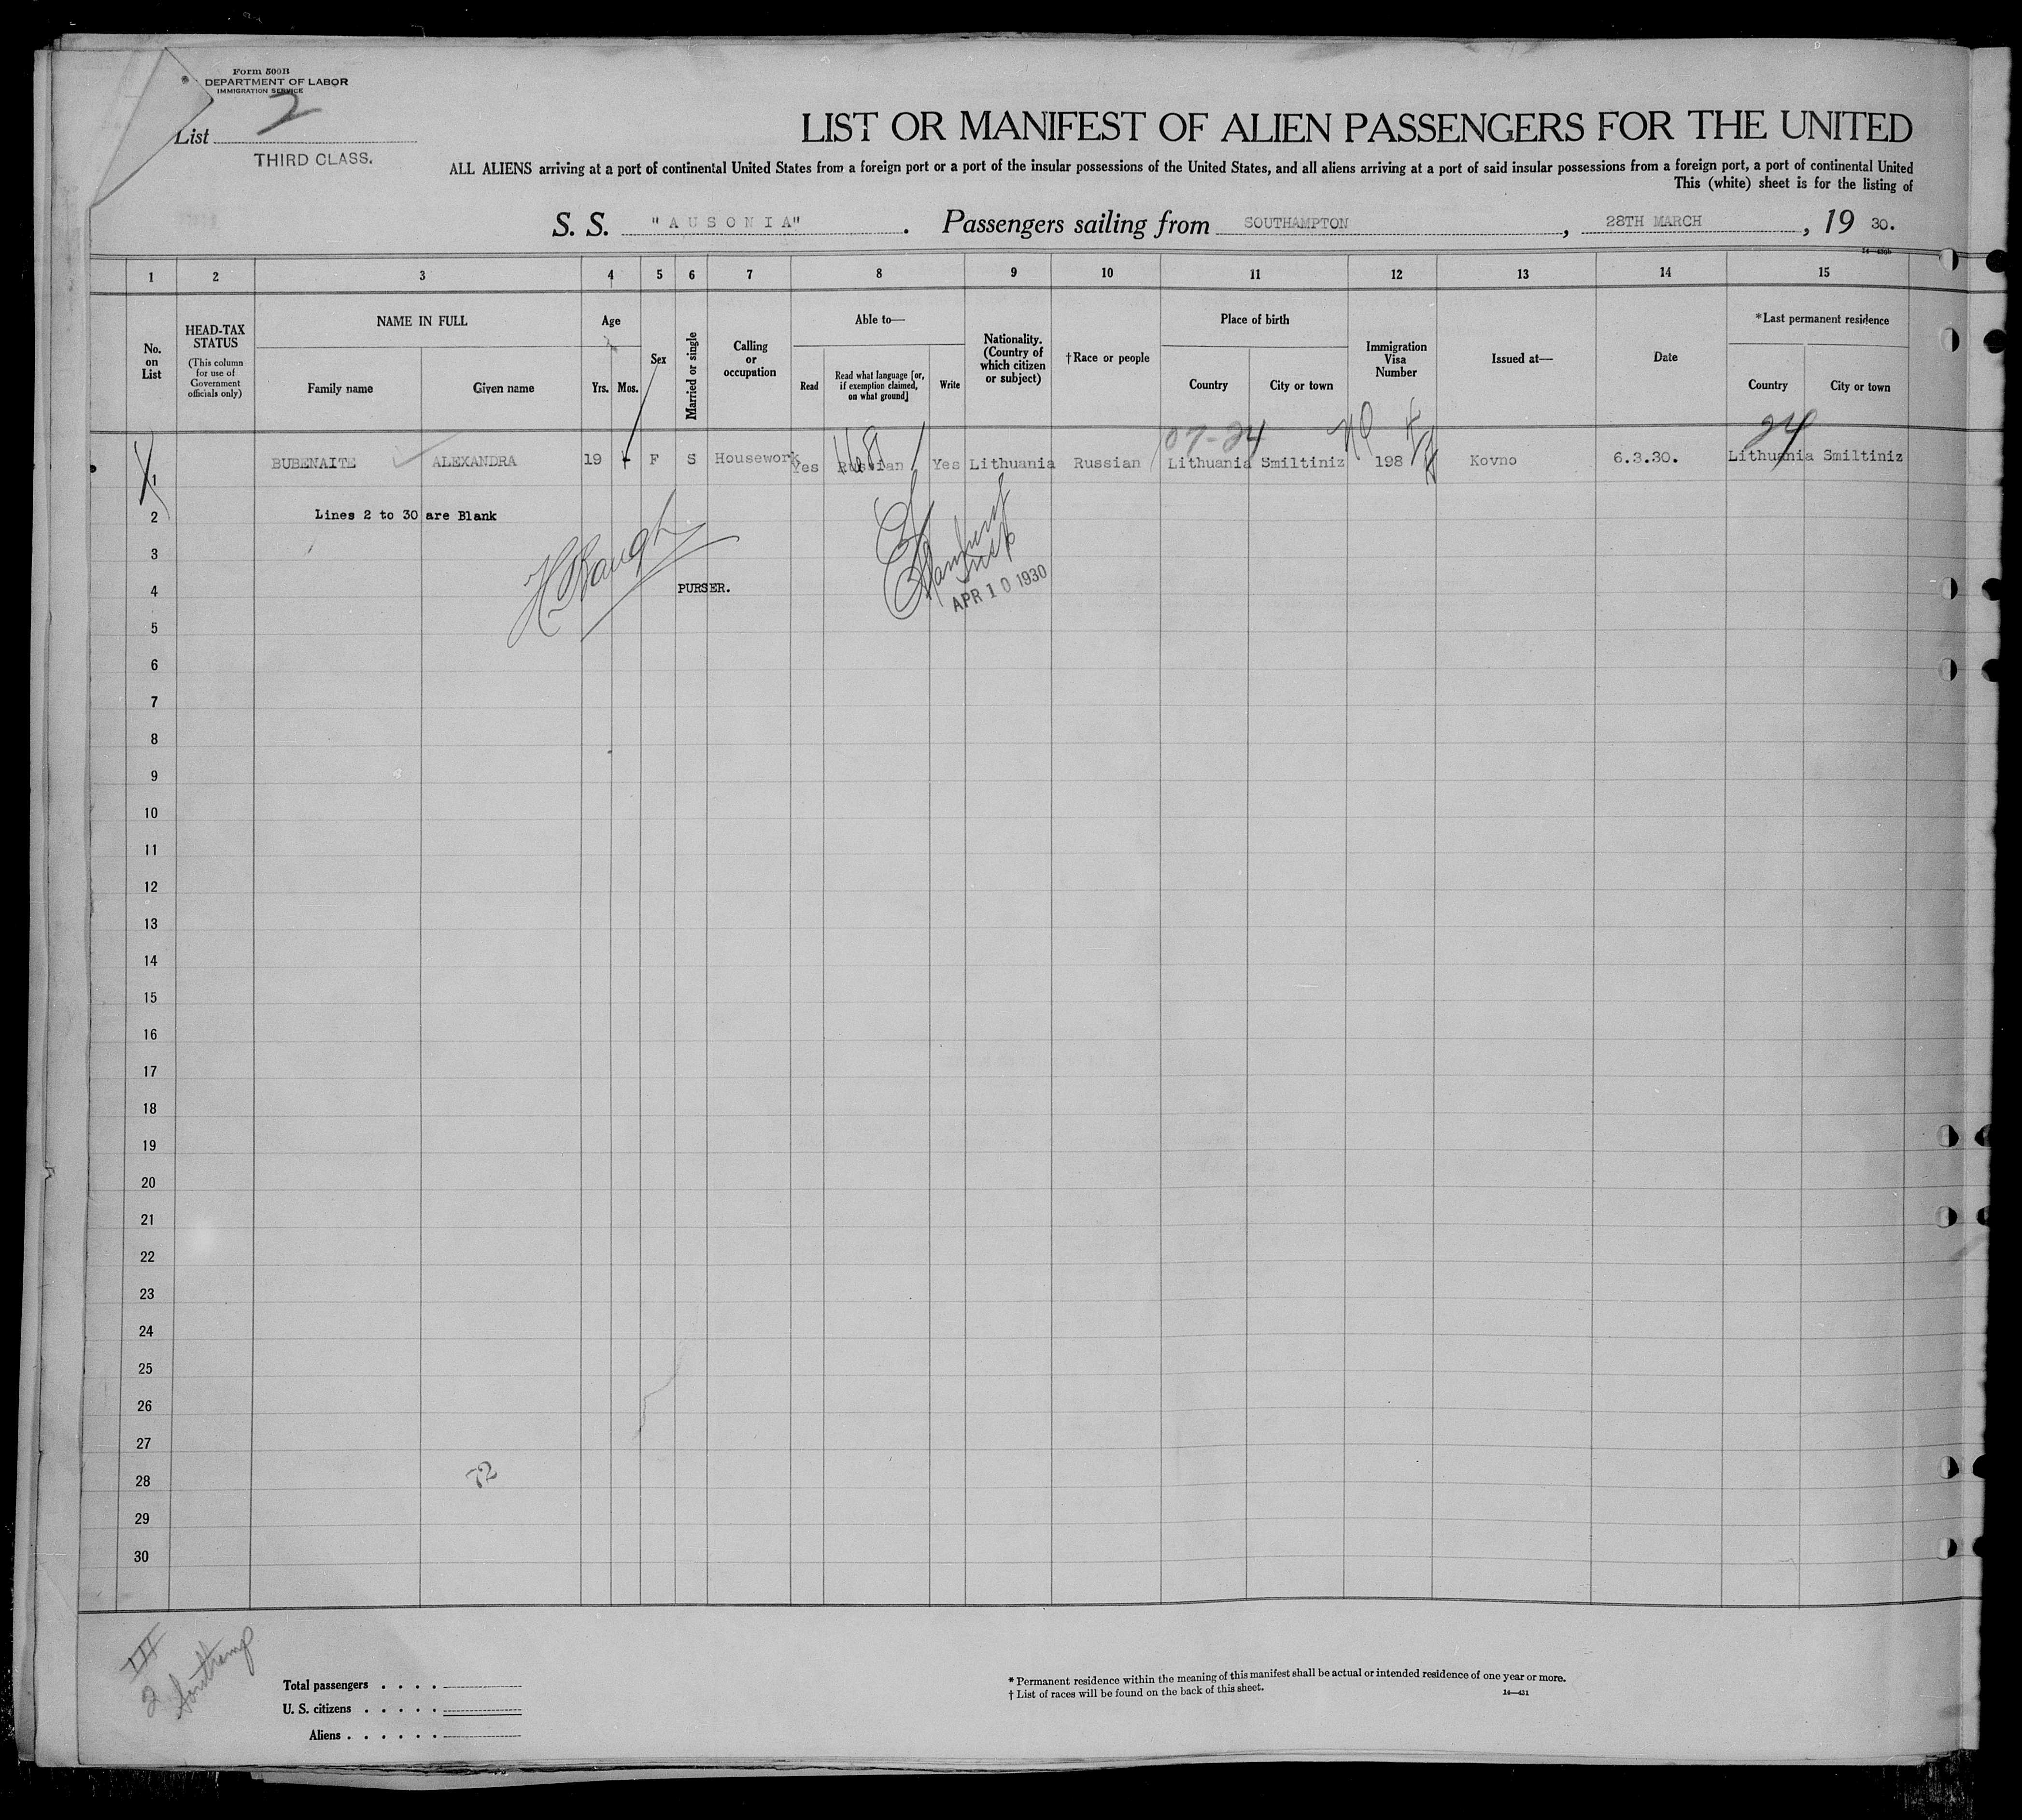 Form 500B
DEPARTMENT OF LABOR
IMMIGRATION SERVICE
List 2
THIRD CLASS.
LIST OR MANIFEST OF ALIEN PASSENGERS FOR THE UNITED
ALL ALIENS arriving at a port of continental United States from a foreign port or a port of the insular possessions of the United States, and all aliens arriving at a port of said insular possessions from a foreign port, a port of continental United
This (white) sheet is for the listing of
S. S. "AUSONIA". Passengers sailing from SOUTHAMPTON, 28TH MARCH, 19 30.
1 2 3 4 5 6 7 8 9 10 11 12 13 14 15
No. on List
HEAD-TAX STATUS
(This column for use of Government officials only)
NAME IN FULL
Family name Given name
Age
Yrs. Mos.
Sex
Married or single
Calling or occupation
Able to—
Read
Read what language [or, if exemption claimed, on what ground]
Write
Nationality. (Country of which citizen or subject)
†Race or people
Place of birth
Country City or town
Immigration Visa Number
Issued at—
Date
*Last permanent residence
Country City or town
07-24 24
1 BUBENAITE ALEXANDRA 19 F S Housework Yes Russian Yes Lithuania Russian Lithuania Smiltiniz 198 Kovno 6.3.30. Lithuania Smiltiniz
2 Lines 2 to 30 are Blank
3
H Baugh
4 PURSER.
APR 10 1930
5
6
7
8
9
10
11
12
13
14
15
16
17
18
19
20
21
22
23
24
25
26
27
28 72
29
30
III
2 Southamp
Total passengers . . . .
U. S. citizens . . . . .
Aliens . . . . . .
* Permanent residence within the meaning of this manifest shall be actual or intended residence of one year or more.
† List of races will be found on the back of this sheet.
14—431